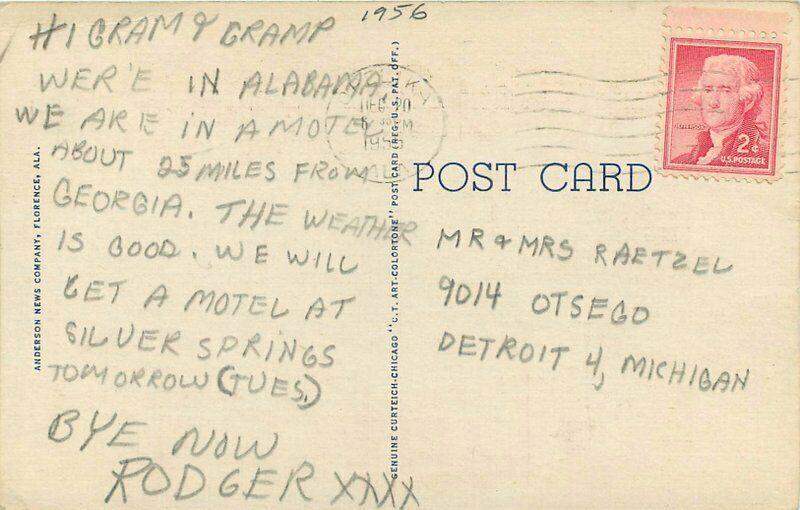 1956
HI GRAM & GRAMP
WER'E IN ALABAMA
WE ARE IN A MOTEL
ABOUT 25 MILES FROM
GEORGIA. THE WEATHER
IS GOOD. WE WILL
GET A MOTEL AT
SILVER SPRINGS
TOMORROW (TUES.)
BYE NOW
RODGER XXXX
ANDERSON NEWS COMPANY, FLORENCE, ALA.
GENUINE CURTEICH-CHICAGO "C.T. ART-COLORTONE" POST CARD (REG. U.S. PAT. OFF.)
POST CARD
JEFFERSON
2¢
U.S. POSTAGE
MR & MRS RAETZEL
9014 OTSEGO
DETROIT 4, MICHIGAN